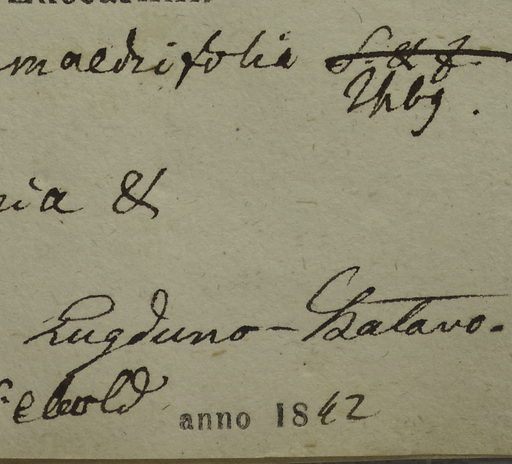 maedrifolia S. & Z.
Thbg.
ria &
Lugduno-Batavo-
Siebold
anno 1842